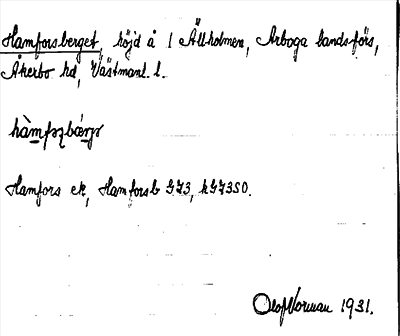 Hamforsberget, höjd å 1 Ällholmen, Arboga landsförs,
Åkerbo hd, Västmanl. l.
Hamfors ek, Hamforsb G73, kG73SO.
Olof Norman 1931.